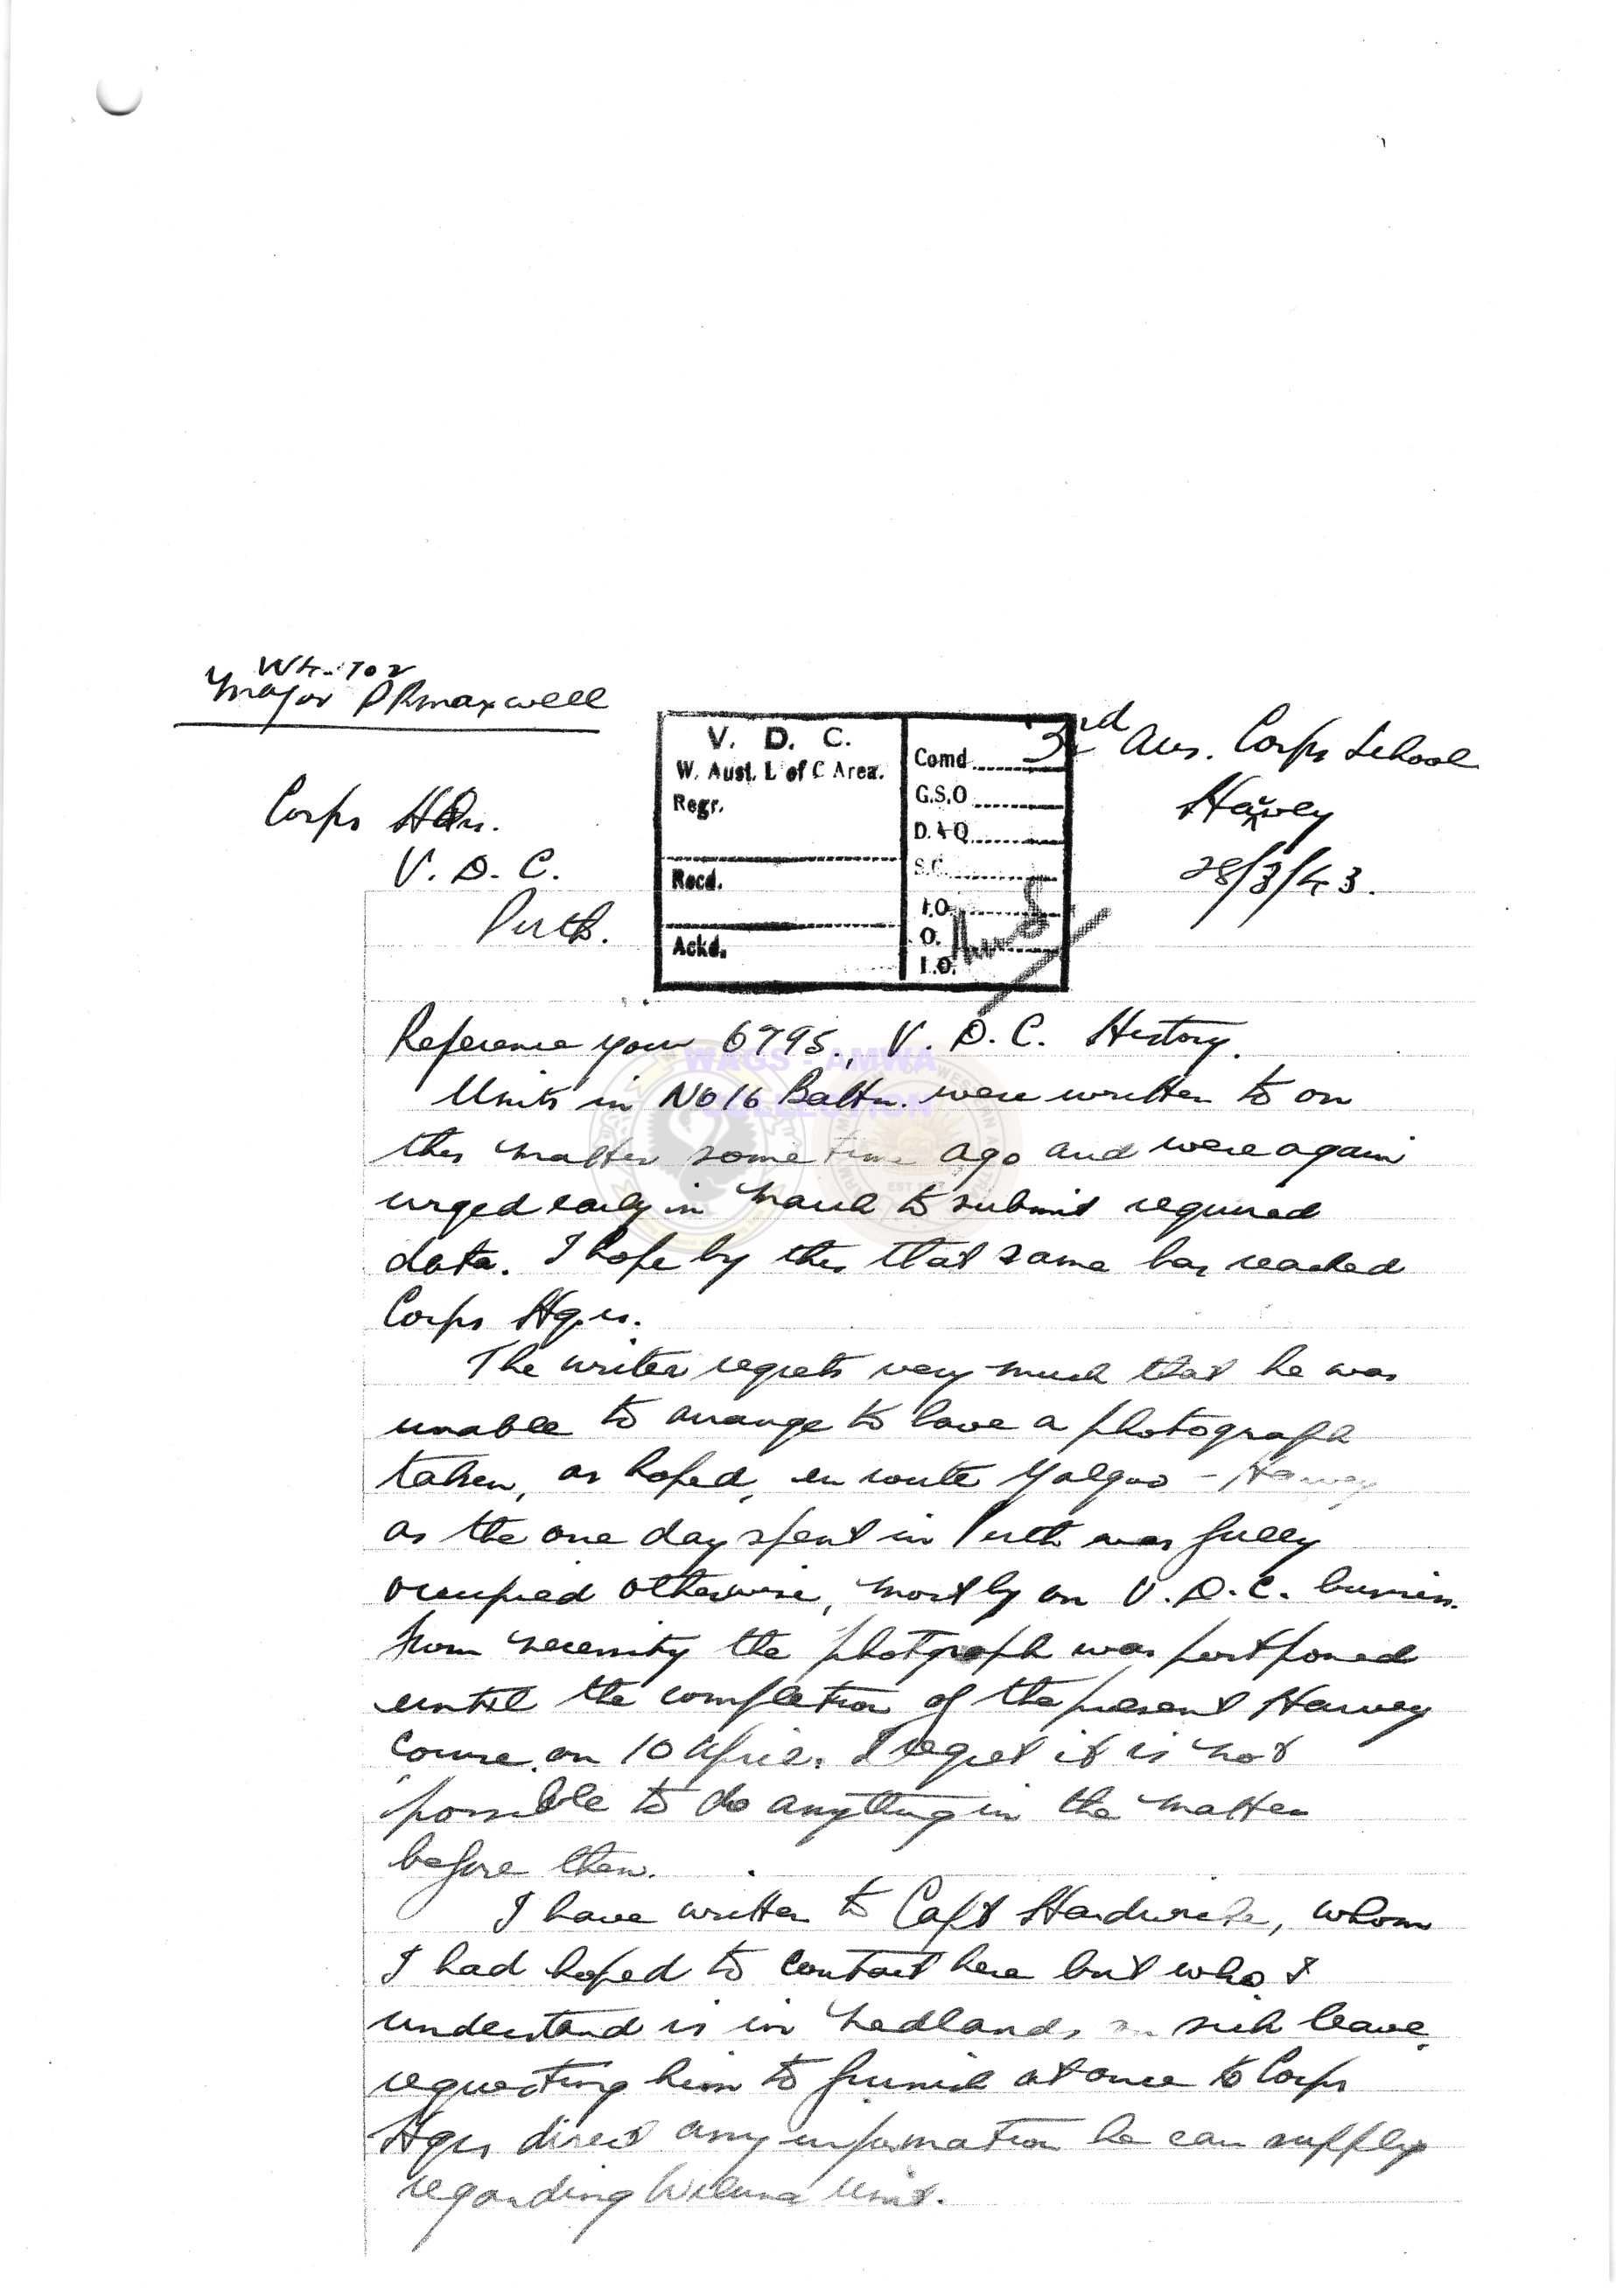 Major P R Maxwell
3rd Aus. Corps School
Harvey
28/3/43.
Corps HQrs.
V. D. C.
Perth.
V. D. C.
W. Aust. L of C Area.
Regr.
Recd.
Ackd.
Comd
G.S.O
D.A.Q
S.C.
I.O.
O.
I.O.
Reference your 6795, V. D. C. History.
Units in No 16 Battn. were written to on
this matter some time ago and were again
urged early in March to submit required
data. I hope by this that same has reached
Corps Hqrs.
The writer regrets very much that he was
unable to arrange to have a photograph
taken, as hoped, en route Yalgoo - Harvey
as the one day spent in Perth was fully
occupied otherwise, mostly on V. D. C. business.
From necessity the photgraph was postponed
until the completion of the present Harvey
Course on 10 April. I regret it is not
possible to do anything in the matter
before then.
I have written to Capt Hardwicke, whom
I had hoped to contact here but who I
understand is in Nedlands on sick leave,
requesting him to furnish at once to Corps
Hqrs direct any information he can supply
regarding Wiluna Unit.
WAGS - AMWA
COLLECTION